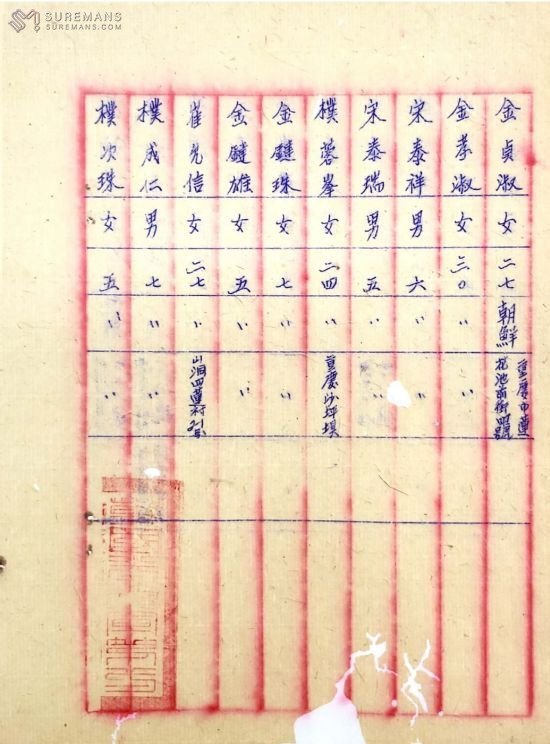 SUREMANS
SUREMANS.COM
金貞淑 女 二七 朝鮮 重慶市蓮花池前街四號
金孝淑 女 三〇 〃
宋泰祥 男 六 〃
宋泰瑞 男 五 〃
樸蓉峯 女 二四 〃 重慶沙坪垻
金鏈珠 女 七 〃 〃
金鏈雄 女 五 〃 〃
崔允信 女 二七 〃 山洞四蓮村21号
樸成仁 男 七 〃 〃
樸次珠 女 五 〃 〃